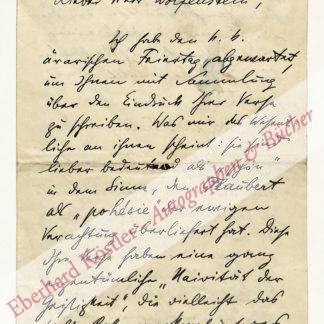 Lieber Herr Wolfenstein,
Ich hab den k. k.
ärarischen Feiertag abgewartet,
um Ihnen mit Sammlung
über den Eindruck Ihrer Verse
zu schreiben. Was mir das Wesent-
liche an ihnen scheint: sie
lieber bedeutend als "schön"
in dem Sinn, den Flaubert
als "pohésie" der ewigen
Verachtung überliefert hat. Diese
Ihre Verse haben eine ganz
eigentümliche "Naivität der
Geistigkeit", die vielleicht das
Eberhard Köstler Autographen & Bücher